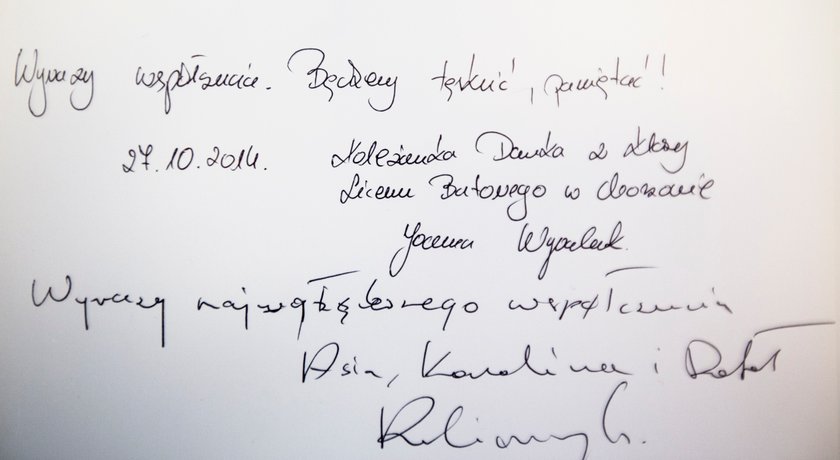 Wyrazy współczucia. Będziemy tęsknić, pamiętać!
27.10.2014. Koleżanka Danka z klasy
Liceum Batorego w Chorzowie
Joanna
Wyrazy najgłębszego współczucia
Asia, Karolina i Rafał